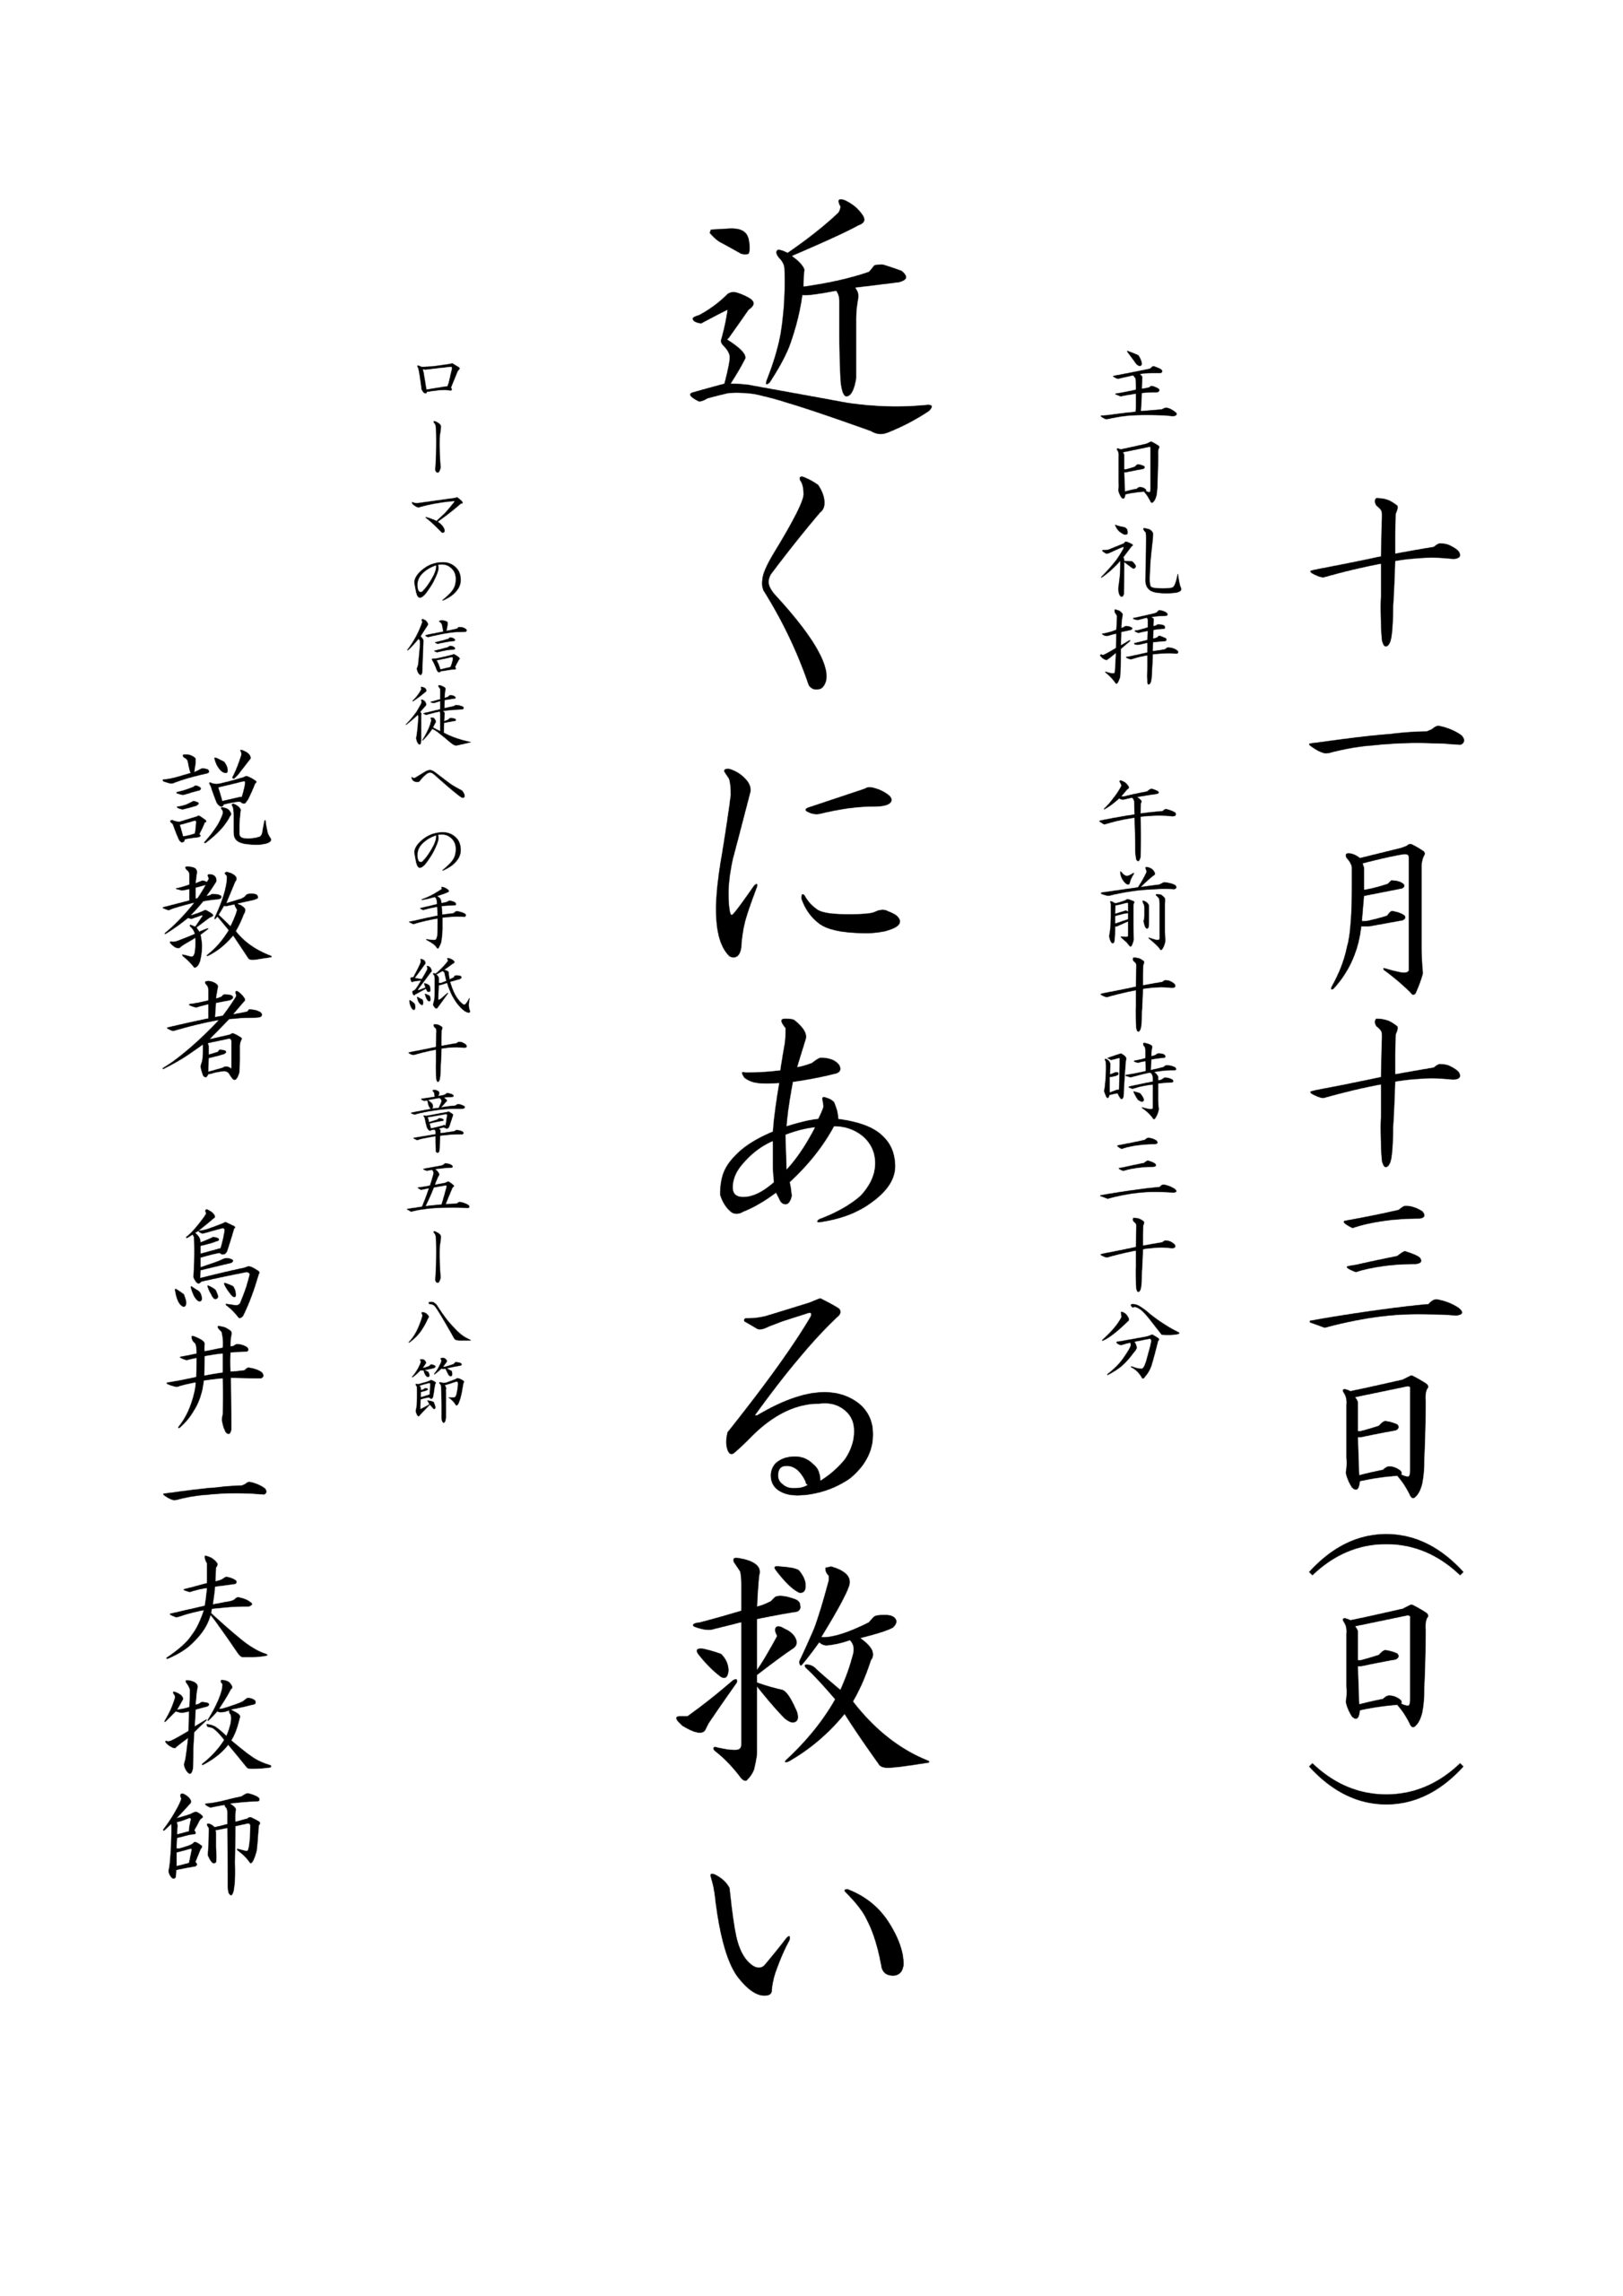 十一月十三日(日)
主日礼拝　午前十時三十分
近くにある救い
ローマの信徒への手紙十章五ー八節
説教者　鳥井一夫牧師